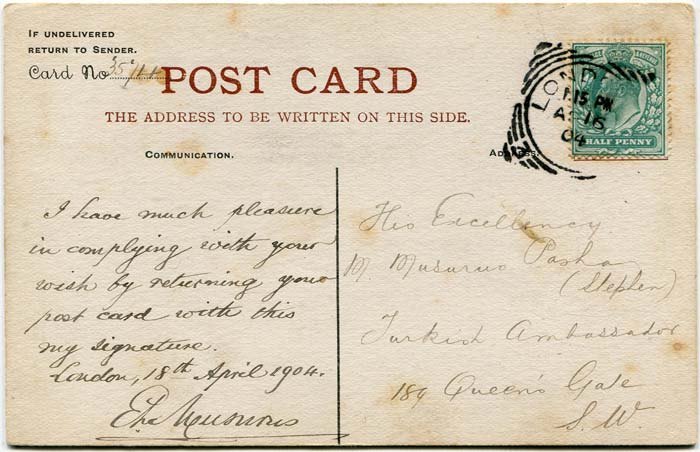 IF UNDELIVERED
RETURN TO SENDER.
Card No
POST CARD
THE ADDRESS TO BE WRITTEN ON THIS SIDE.
COMMUNICATION.
LOND
15 PM
16
04
HALF PENNY
I have much pleasure
in complying with your
wish by returning your
post card with this
my signature.
London, 18th April 1904.
Musurus
His Excellency
M Musurus Pasha
(Stephen)
Turkish Ambassador
189 Queen's Gate
S. W.